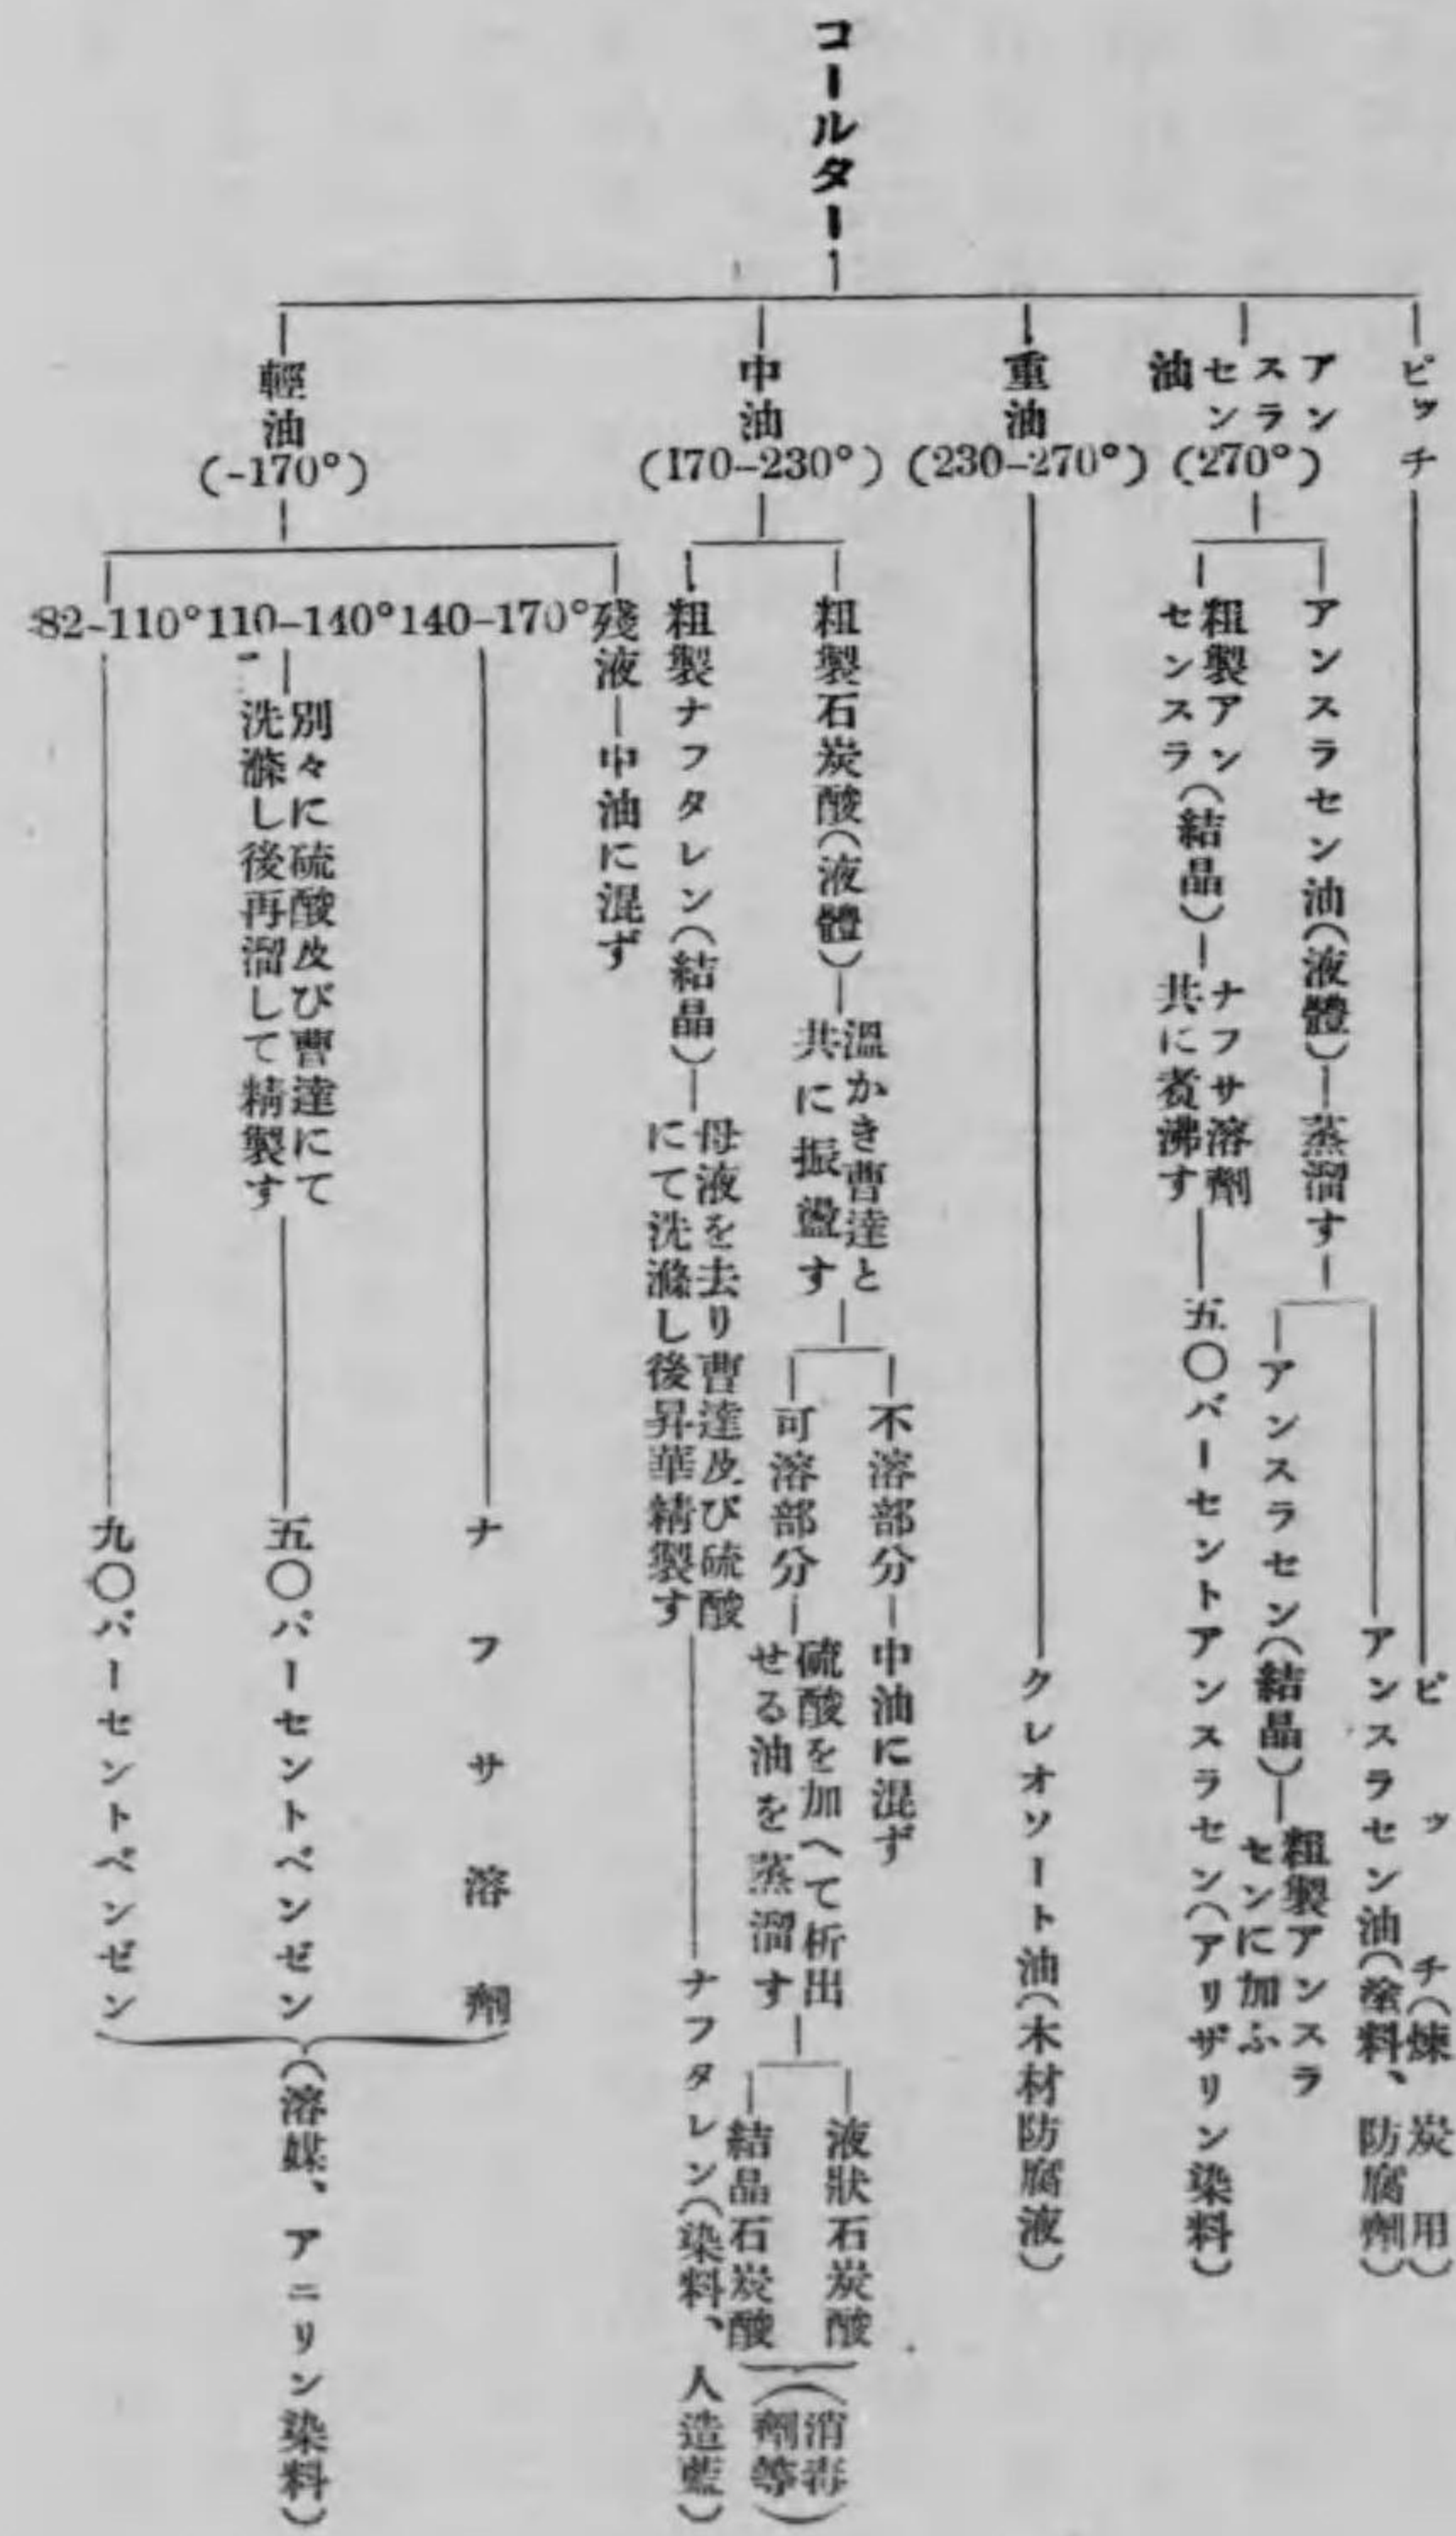 コールター
ピッチ
ピッチ(煉炭用)
アンスラセン油
(270°)
アンスラセン油(液體)
蒸溜す
アンスラセン油(塗料、防腐劑)
アンスラセン(結晶)
粗製アンスラ
センに加ふ
粗製アンスラセン(結晶)
ナフサ溶劑
共に煮沸す
五〇パーセントアンスラセン(アリザリン染料)
重油
(230-270°)
クレオソート油(木材防腐液)
中油
(170-230°)
粗製石炭酸(液體)
溫かき曹達と
共に振盪す
不溶部分
中油に混ず
可溶部分
硫酸を加へて析出
せる油を蒸溜す
液狀石炭酸
結晶石炭酸
(消毒
劑等)
粗製ナフタレン(結晶)
母液を去り曹達及び硫酸
にて洗滌し後昇華精製す
ナフタレン(染料、人造藍)
輕油
(-170°)
殘液
中油に混ず
140-170°
ナフサ溶劑
110-140°
別々に硫酸及び曹達にて
洗滌し後再溜して精製す
五〇パーセントベンゼン
82-110°
九〇パーセントベンゼン
(溶媒、アニリン染料)